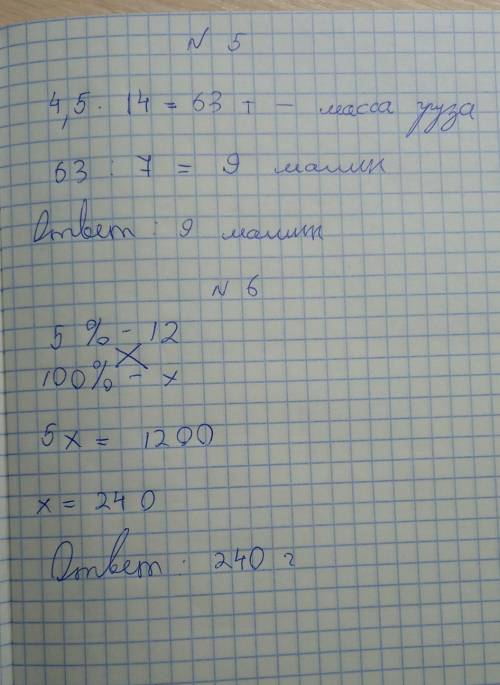 N 5
4,5 · 14 = 63 т - масса груза
63 : 7 = 9 машин
Ответ : 9 машин
N 6
5 % - 12
100% - x
5x = 1200
x = 240
Ответ : 240 г